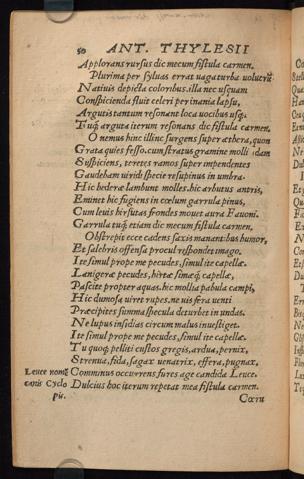 50 ANT. THYLESII
Applorans rursus dic mecum fistula carmen.
Plurima per syluas errat uaga turba uolucrũ
Natiuis depicta coloribus. illa nec usquam
Conspicienda fluit celeri per inania lapsu,
Argutis tantum resonant loca uocibus usq;.
Tuq; arguta iterum resonans dic fistula carmen.
O nemus hinc illinc surgens super æthera, quon
Grata quies fesso. cum stratus gramine molli idam
Suspiciens, teretes ramos super impendentes
Gaudebam uiridi specie resupinus in umbra.
Hic hederæ lambunt molles. hic arbutus antris,
Eminet hic fugiens in cœlum garrula pinus,
Cum leuis hirsutas frondes mouet aura Fauoni.
Garrula tuq; etiam dic mecum fistula carmen.
Obstrepit ecce cadens saxis manantibus humor,
Et salebris offensa procul respondet imago.
Ite simul prope me pecudes, simul ite capellæ.
Lanigeræ pecudes, hirtæ simæq; capellæ,
Pascite propter aquas. hic mollia pabula campi,
Hic dumosa uiret rupes. ne uis fera uenti
Præcipites summa specula deturbet in undas.
Ne lupus insidias circum malus inuestiget.
Ite simul prope me pecudes, simul ite capellæ.
Tu quoq; pelliti custos gregis, ardua, pernix,
Strenua, fida, sagax uenatrix, effera, pugnax,
Leuce nomẽ Comminus occurrens fures age candida Leuce.
canis Cyclo Dulcius hoc iterum repetat mea fistula carmen.
pis. Cœru